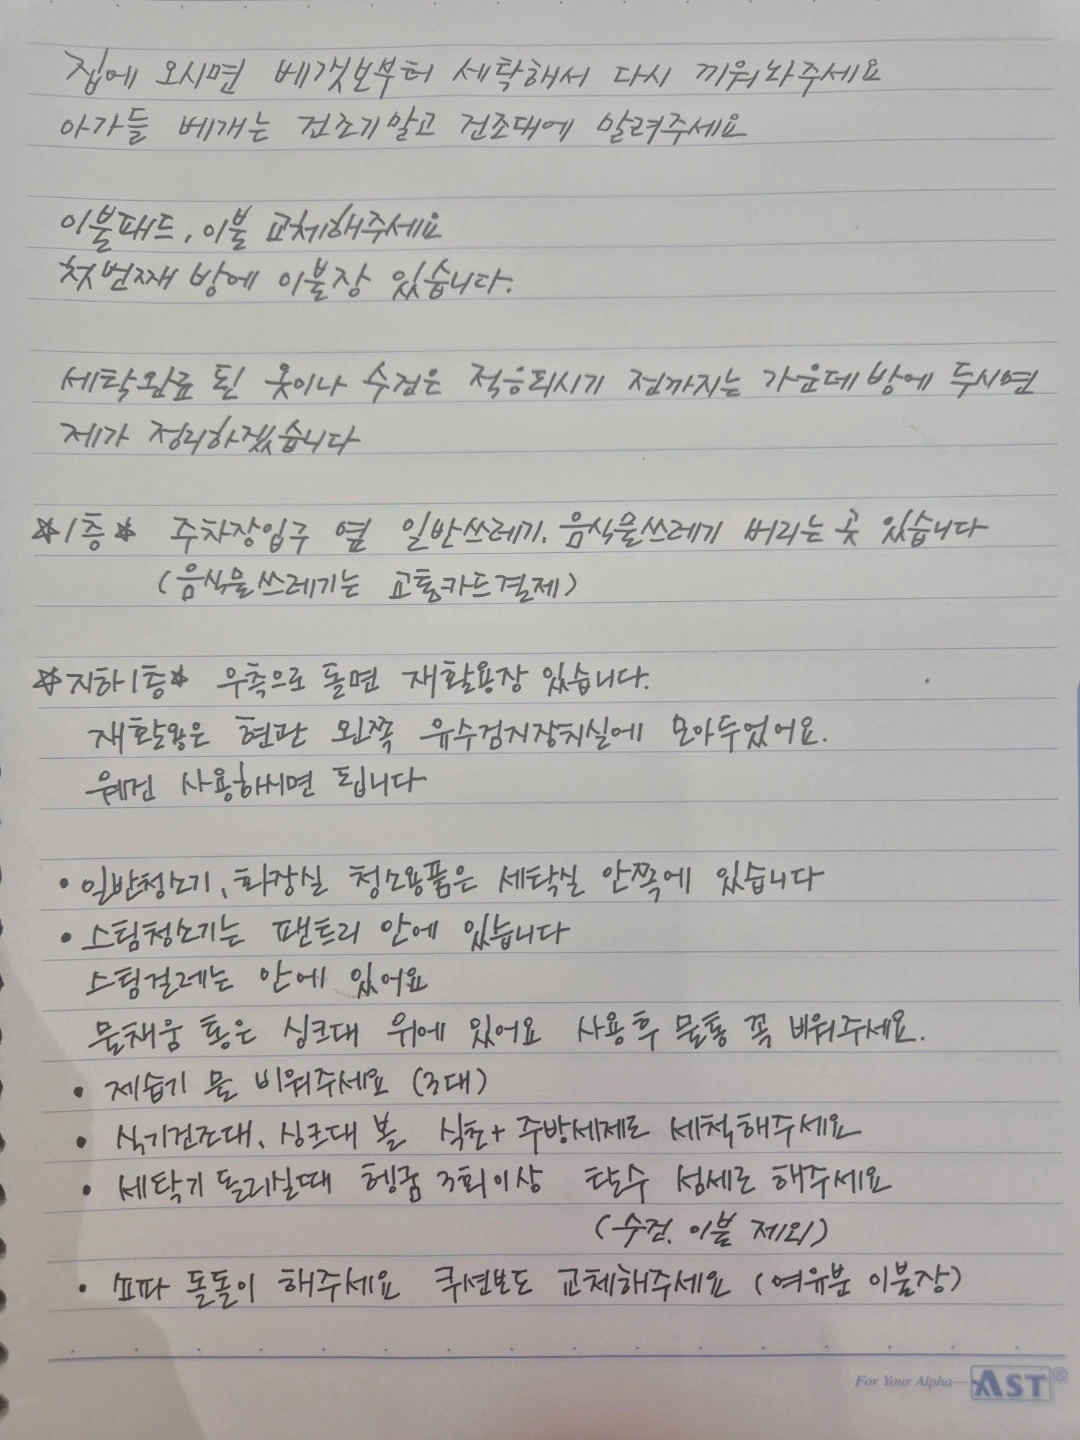 집에 오시면 베갯보부터 세탁해서 다시 끼워놔주세요
아가들 베개는 건조기말고 건조대에 말려주세요
이불패드, 이불 교체해주세요
첫번째 방에 이불장 있습니다.
세탁완료 된 옷이나 수건은 적응되시기 전까지는 가운데 방에 두시면
제가 정리하겠습니다
☆1층☆ 주차장입구 옆 일반쓰레기, 음식물쓰레기 버리는 곳 있습니다
(음식물쓰레기는 교통카드결제)
☆지하1층☆ 우측으로 돌면 재활용장 있습니다.
재활용은 현관 왼쪽 유수검지장치실에 모아두었어요.
웨건 사용하시면 됩니다
• 일반청소기, 화장실 청소용품은 세탁실 안쪽에 있습니다
• 스팀청소기는 팬트리 안에 있습니다
스팀걸레는 안에 있어요
물채움 통은 싱크대 위에 있어요 사용후 물통 꼭 비워주세요.
• 제습기 물 비워주세요 (3대)
• 식기건조대, 싱크대 볼 식초+ 주방세제로 세척해주세요
• 세탁기 돌리실때 헹굼 3회이상 탈수 섬세로 해주세요
(수건, 이불 제외)
• 쇼파 돌돌이 해주세요 쿠션보도 교체해주세요 (여유분 이불장)
For Your Alpha— AST®